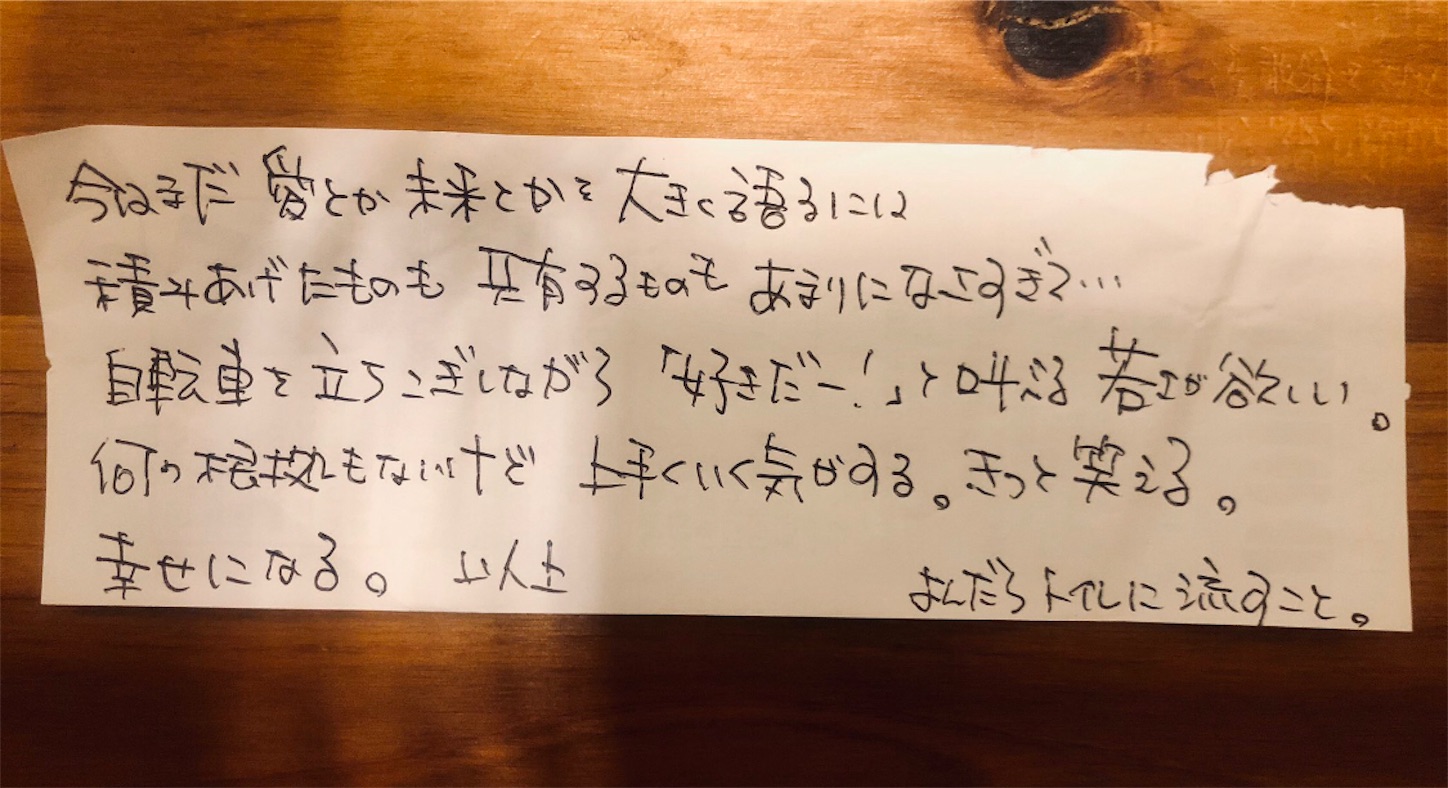 今はまだ 愛とか 未来とかを 大きく語るには
積みあげたものも 共有するものも あまりになさすぎて…
自転車を立ちこぎしながら 「好きだー!」と叫べる 若さが欲しい。
何の根拠もないけど 上手くいく気がする。きっと笑える。
幸せになる。 以上
よんだらトイレに流すこと。